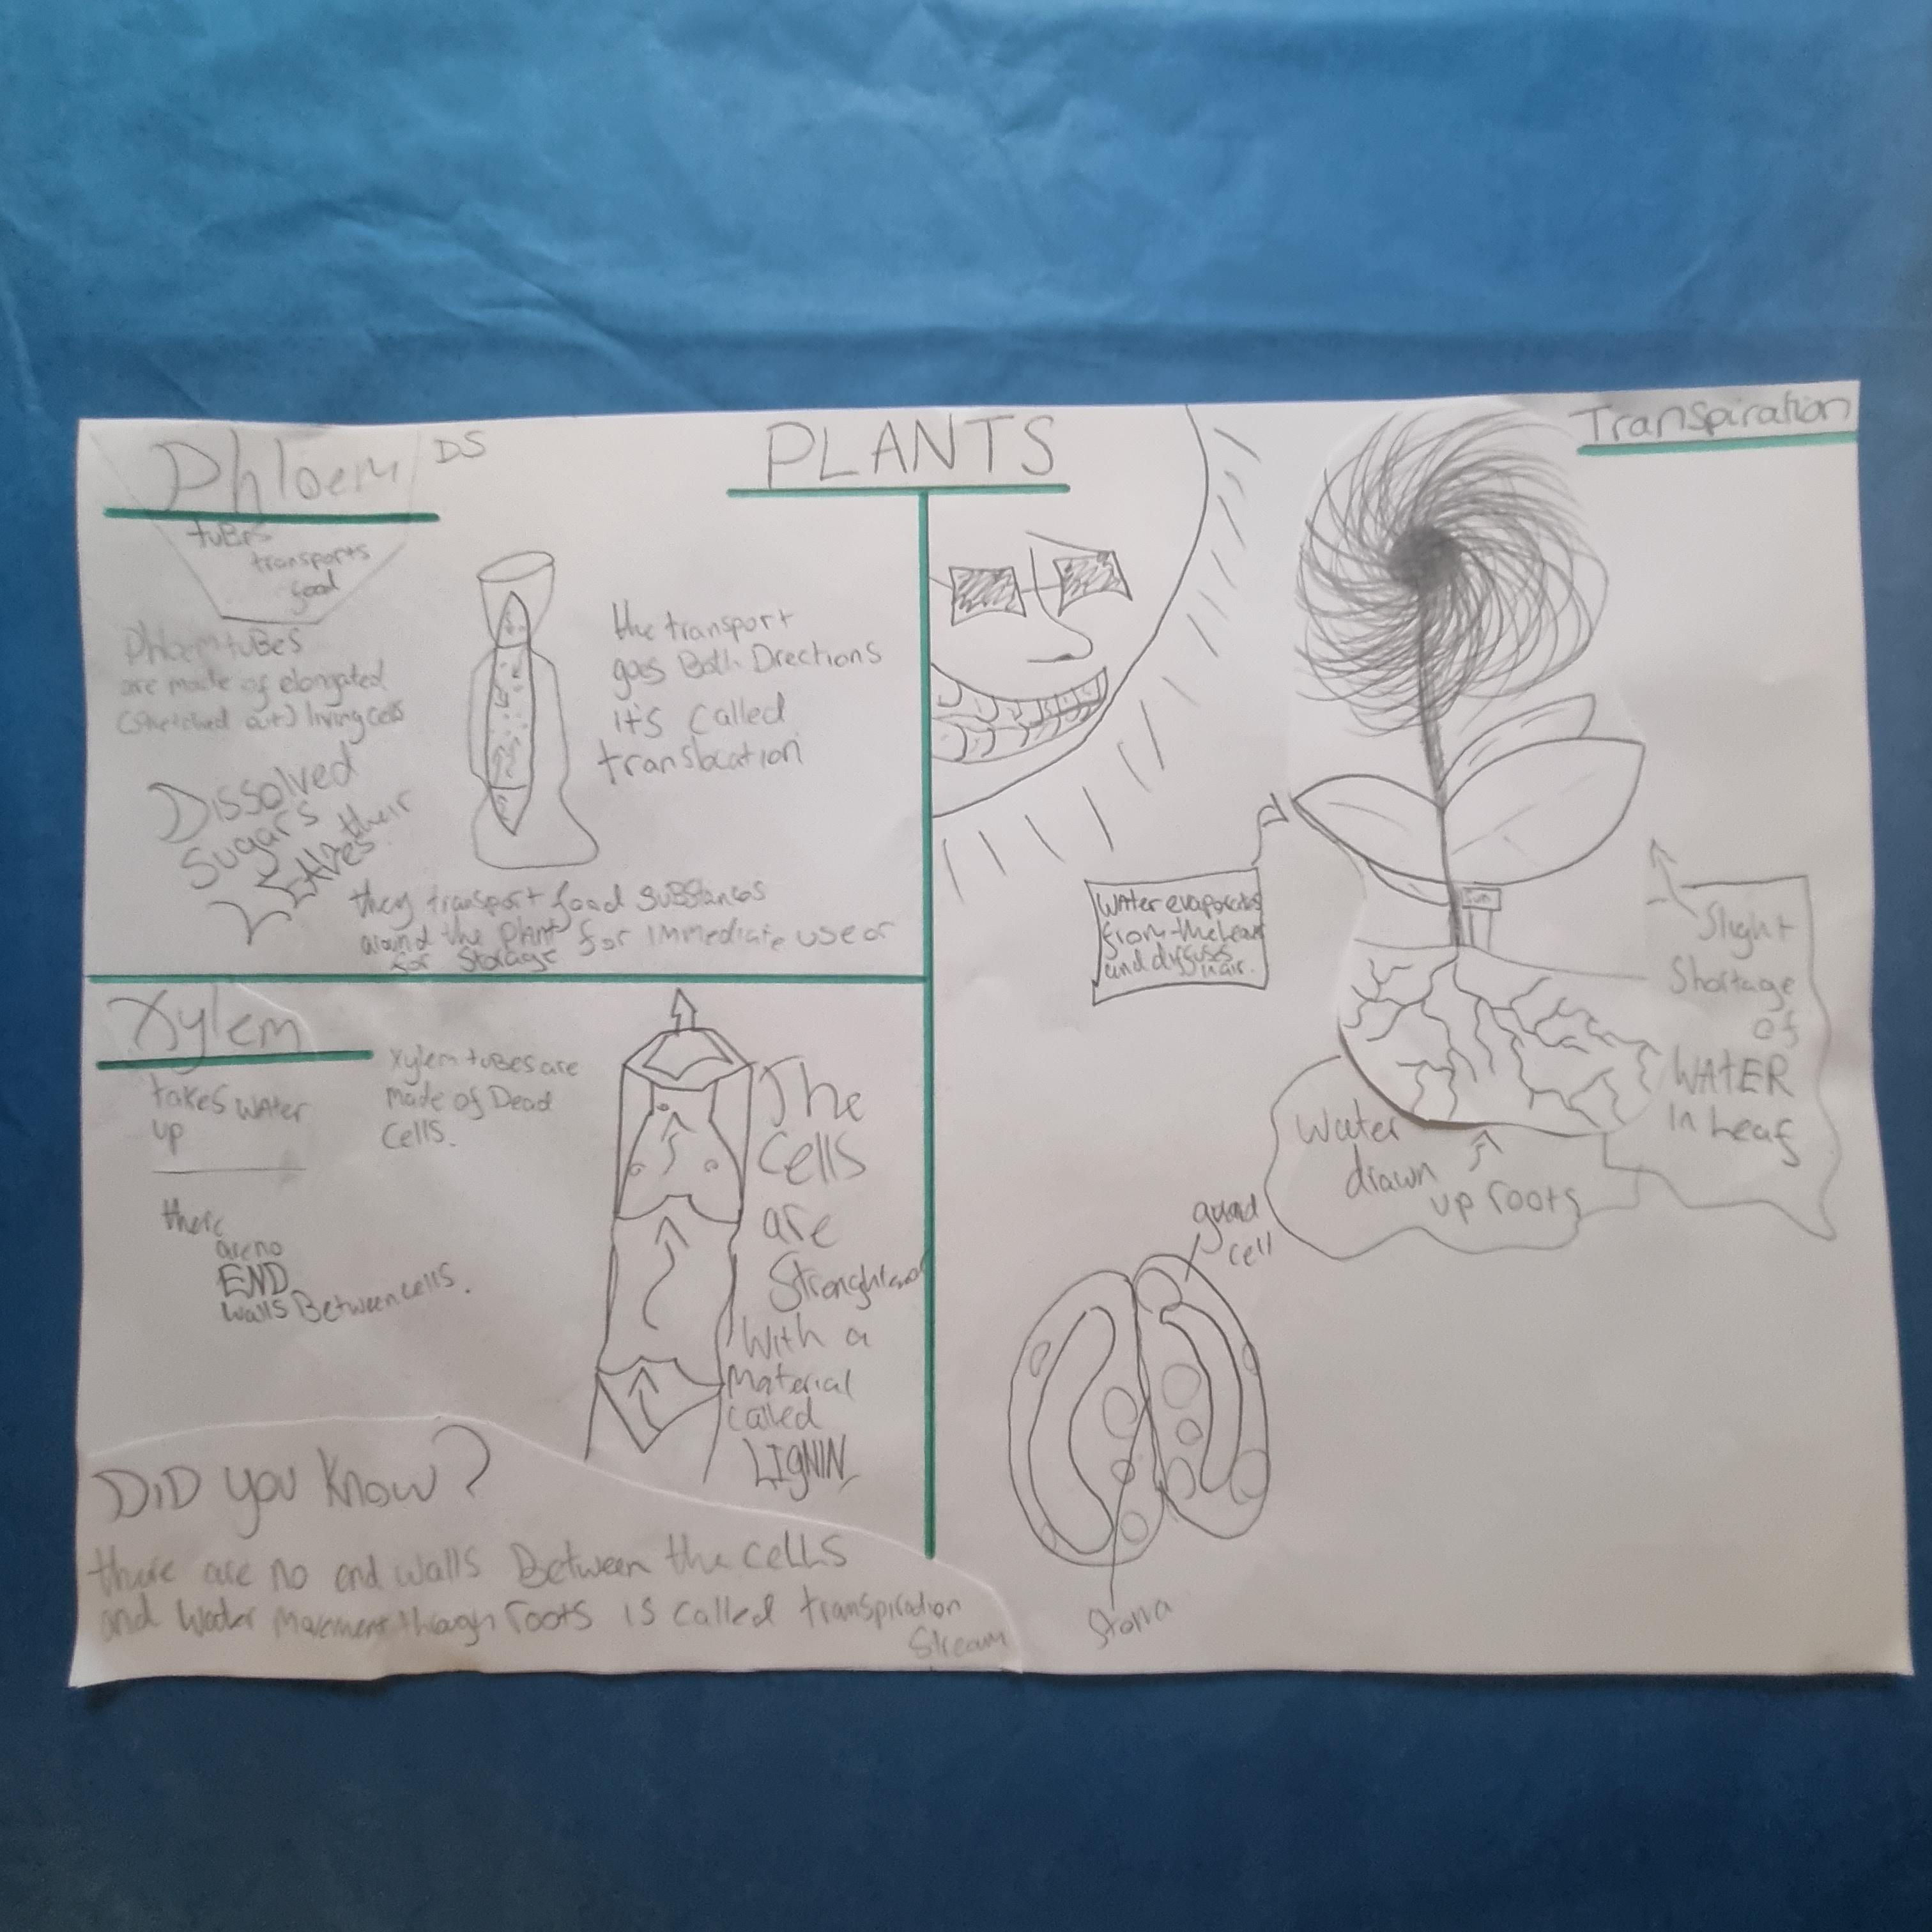 PLANTS
Phloem
DS
tuBes
transports
food
Phloem tuBes
are made of elongated
(stretched out) living cells
Dissolved
sugars
their
LEAVES
the transport
goes Both Directions
it's called
translocation
they transport food suBstances
around the plant for immediate use or
for storage
Xylem
takes WAter
up
Xylem tuBes are
made of Dead
cells.
there
are no
END
walls Between cells.
The
cells
are
With a
Material
called
LIGNIN
DiD you Know?
there are no end walls Between the cells
and water movement through roots is called transpiration
Stream
Transpiration
WAter evaporates
from the leaf
and diffuses
in air.
Sun
Slight
Shortage
of
WAtER
in Leaf
Water
drawn
up roots
guard
cell
Stoma